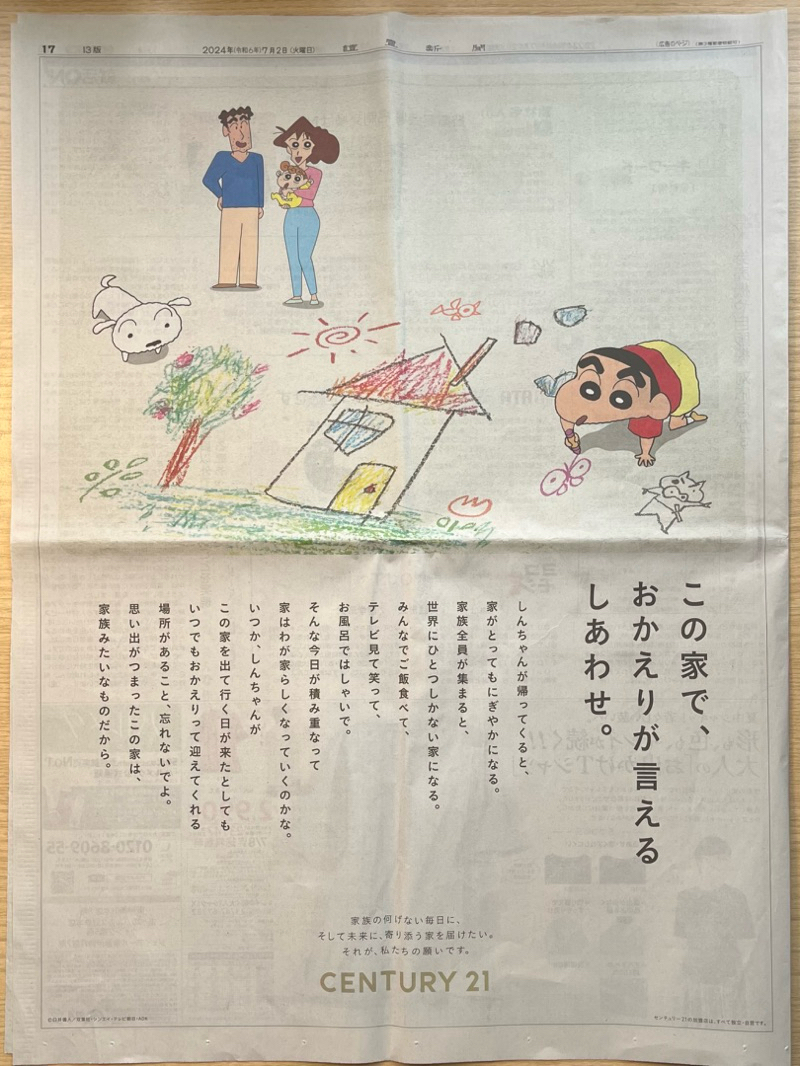 17
13版
2024年(令和6年)7月2日(火曜日)
讀賣新聞
この家で、
おかえりが言える
しあわせ。
しんちゃんが帰ってくると、
家がとってもにぎやかになる。
家族全員が集まると、
世界にひとつしかない家になる。
みんなでご飯食べて、
テレビ見て笑って、
お風呂ではしゃいで。
そんな今日が積み重なって
家はわが家らしくなっていくのかな。
いつか、しんちゃんが
この家を出て行く日が来たとしても
いつでもおかえりって迎えてくれる
場所があること、忘れないでよ。
思い出がつまったこの家は、
家族みたいなものだから。
家族の何げない毎日に、
そして未来に、寄り添う家を届けたい。
それが、私たちの願いです。
CENTURY 21
©臼井儀人/双葉社・シンエイ・テレビ朝日・ADK
センチュリー21の加盟店は、すべて独立・自営です。